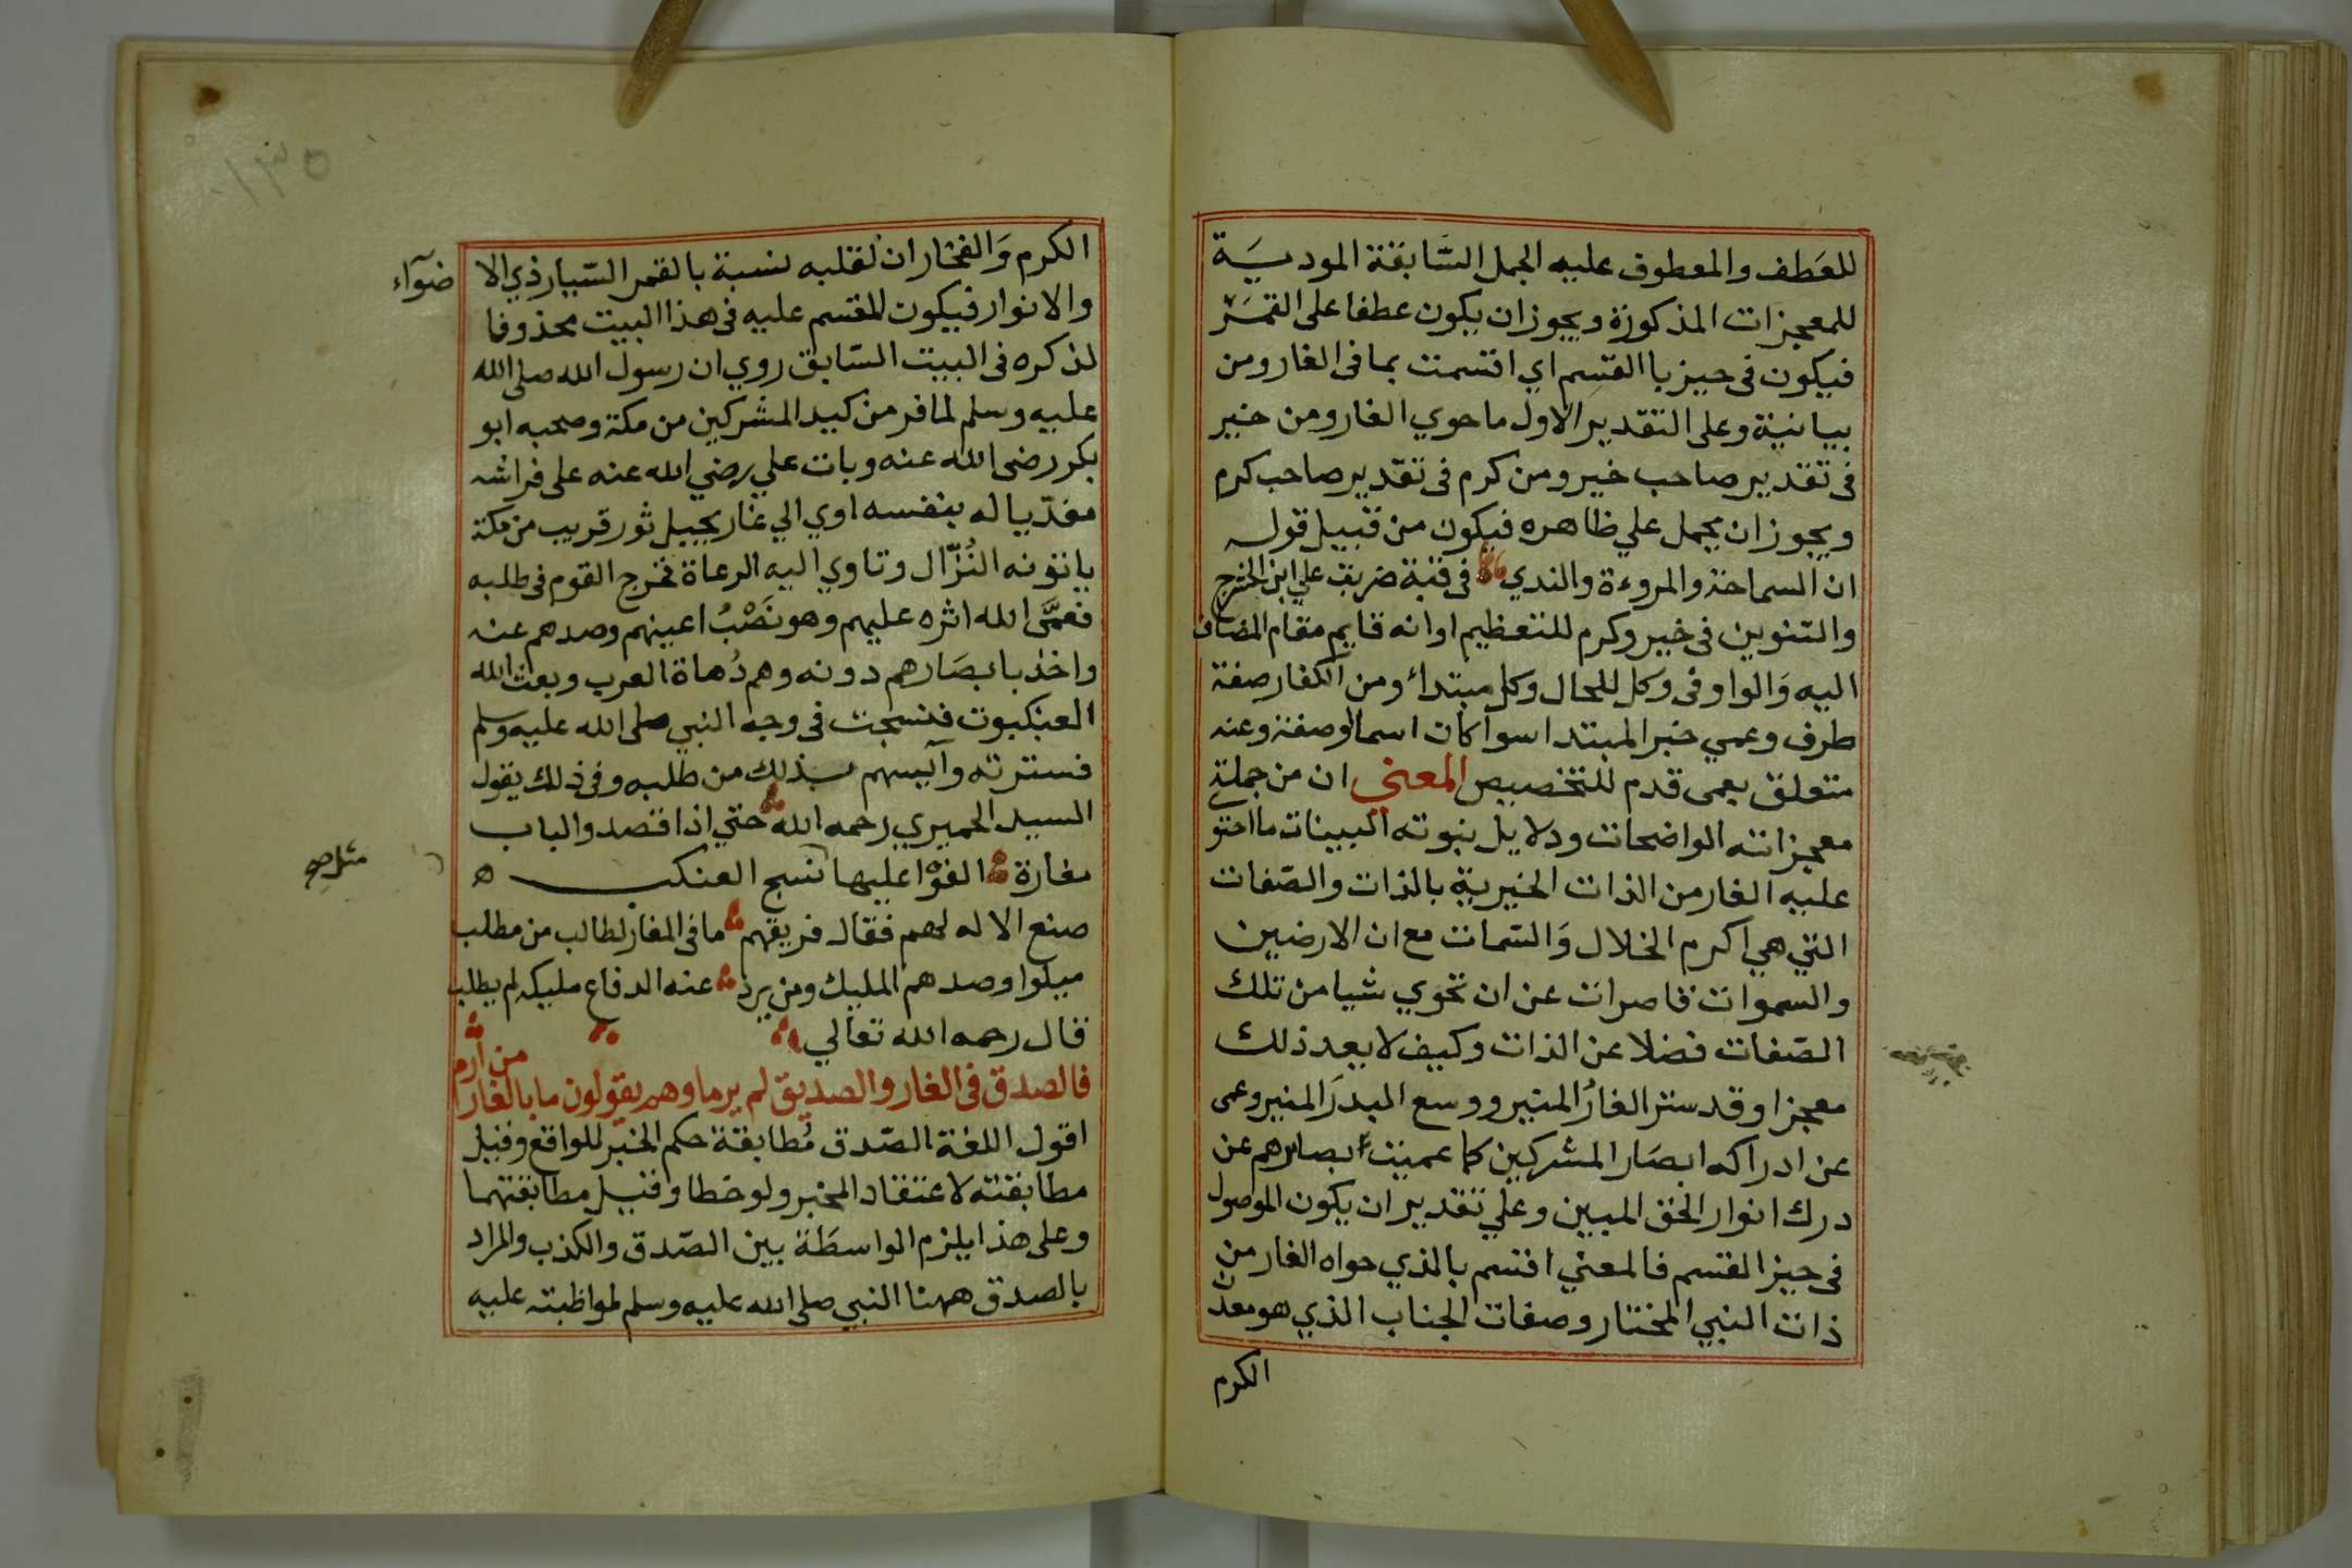 للعَطف والمعطوف عليه الجمل السَّابقة الموديَة
للمعجزات المذكورة ويجوز ان يكون عطفا على القمَر
فيكون فى حيز باالقسم اي اقسمت بما فى الغار ومن
بيانية وعلى التقدير الاول ما حوي الغار ومن خير
فى تقدير صاحب خير ومن كرم فى تقدير صاحب كرم
ويجوز ان يحمل علي ظاهره فيكون من قبيل قوله
ان السماحة والمروءة والندي فى قبة ضربت علي ابن الحشرج
والتنوين فى خير وكرم للتعظيم او انه قايم مقام المضاف
اليه وَالواو فى وكل للحال وكل مبتداء ومن الكفار صفة
طرف وعمي خبر المبتدا سوآ كان اسما او صفة وعنه
متعلق بعمى قدم للتخصيص المعنى ان من جملة
معجزاته الواضحات ودلايل نبوته البينات ما احتو
عليه الغار من الذات الخيرية بالذات والصّفات
التي هي اكرم الخلال وَالسّمات مع ان الارضين
والسموات قاصرات عن ان تحوي شيا من تلك
الصّفات فضلا عن الذات وكيف لا يعد ذلك
معجزا وقد ستر الغارُ المنير ووسع البدرَ المنير وعمى
عن ادراكه ابصَار المشركين كما عميت ابصايرهم عن
درك انوار الحق المبين وعلي تقدير ان يكون الموصول
فى حيز القسم فالمعني اقسم بالذي حواه الغار من
ذات النبي المختار وصفات الجناب الذي هو معدن
الكرم
الكرم وَالفخار ان لقلبه نسبة بالقمر السّيار ذي الا
ضوآء
والانوار فيكون المقسم عليه فى هذا البيت محذوفا
لذكره فى البيت السّابق روي ان رسول الله صلى الله
عليه وسلم لما فر من كيد المشركين من مكة وصحبه ابو
بكر رضى الله عنه وبات علي رضي الله عنه على فراشه
مفدّيا له بنفسه اوي الي غار بجبل ثور قريب من مكة
ياتونه النُزَّال وتاوي اليه الرعاة فخرج القوم فى طلبه
فعمَّى الله اثره عليهم وهو نَصْبُ اعينهم وصدهم عنه
واخذ بابصَارهم دونه وهم دُهاة العرب وبعث الله
العنكبوت فنسجت فى وجه النبي صلى الله عليه وسلم
فسترته وآيسهم بذلك من طلبه وفى ذلك يقول
السيد الحميري رحمه الله حتي اذا قصدوا الباب
مغارة الفوا عليها نسج العنكب ه
صنع الاله لهم فقال فريقهم ما فى المغار لطالب من مطلب
ميلوا وصدهم المليك ومن يرد عنه الدفاع مليكه لم يطلب
قال رحمه الله تعالي
فالصدق فى الغار والصديق لم يرما وهم يقولون ما بالغار من ارم
اقول اللغة الصّدق مُطابقة حكم الخبر للواقع وقيل
مطابقته لاعتقاد المخبر ولو خطا وقيل مطابقتهما
وعلى هذا يلزم الواسطة بين الصّدق والكذب والمراد
بالصدق ههنا النبي صلى الله عليه وسلم لمواظبته عليه